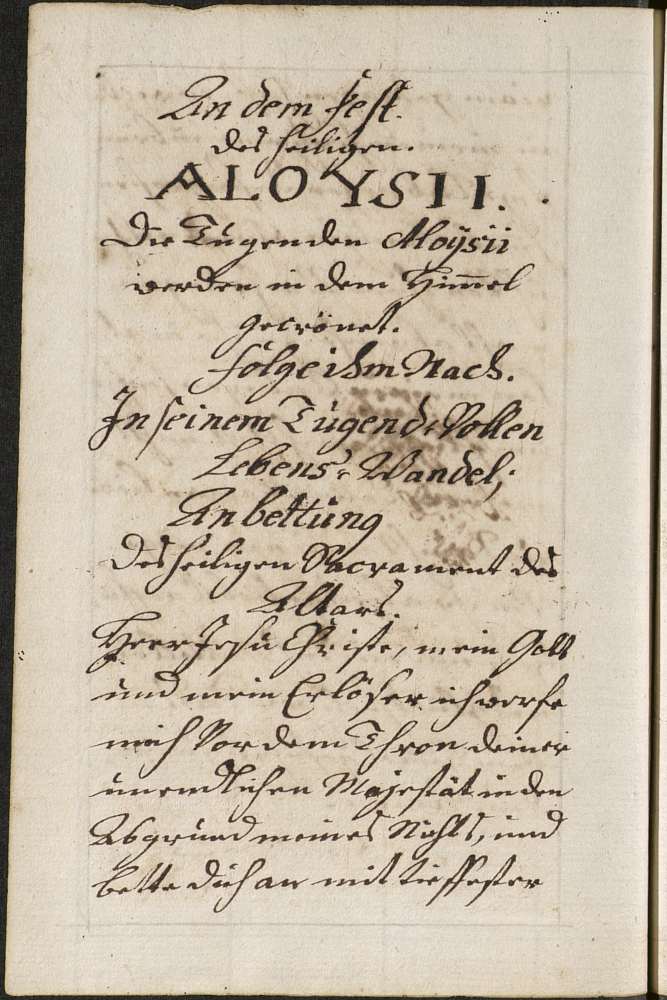 An dem Fest.
des heiligen.
ALOYSII.
Die Tugenden Aloÿsii
werden in dem Him̄el
gecrönet.
folge ihm Nach.
In seinem Tugend-Vollen
Lebens-Wandel;
Anbettung
Des heiligen Sacrament des
Altars.
Herr Jesu Christe, mein Gott
und mein Erlöser ich werfe
mich Vor dem Thron deiner
unendlichen Majestät in den
Abgrund meines Nichts, und
bette dich an mit tieffester